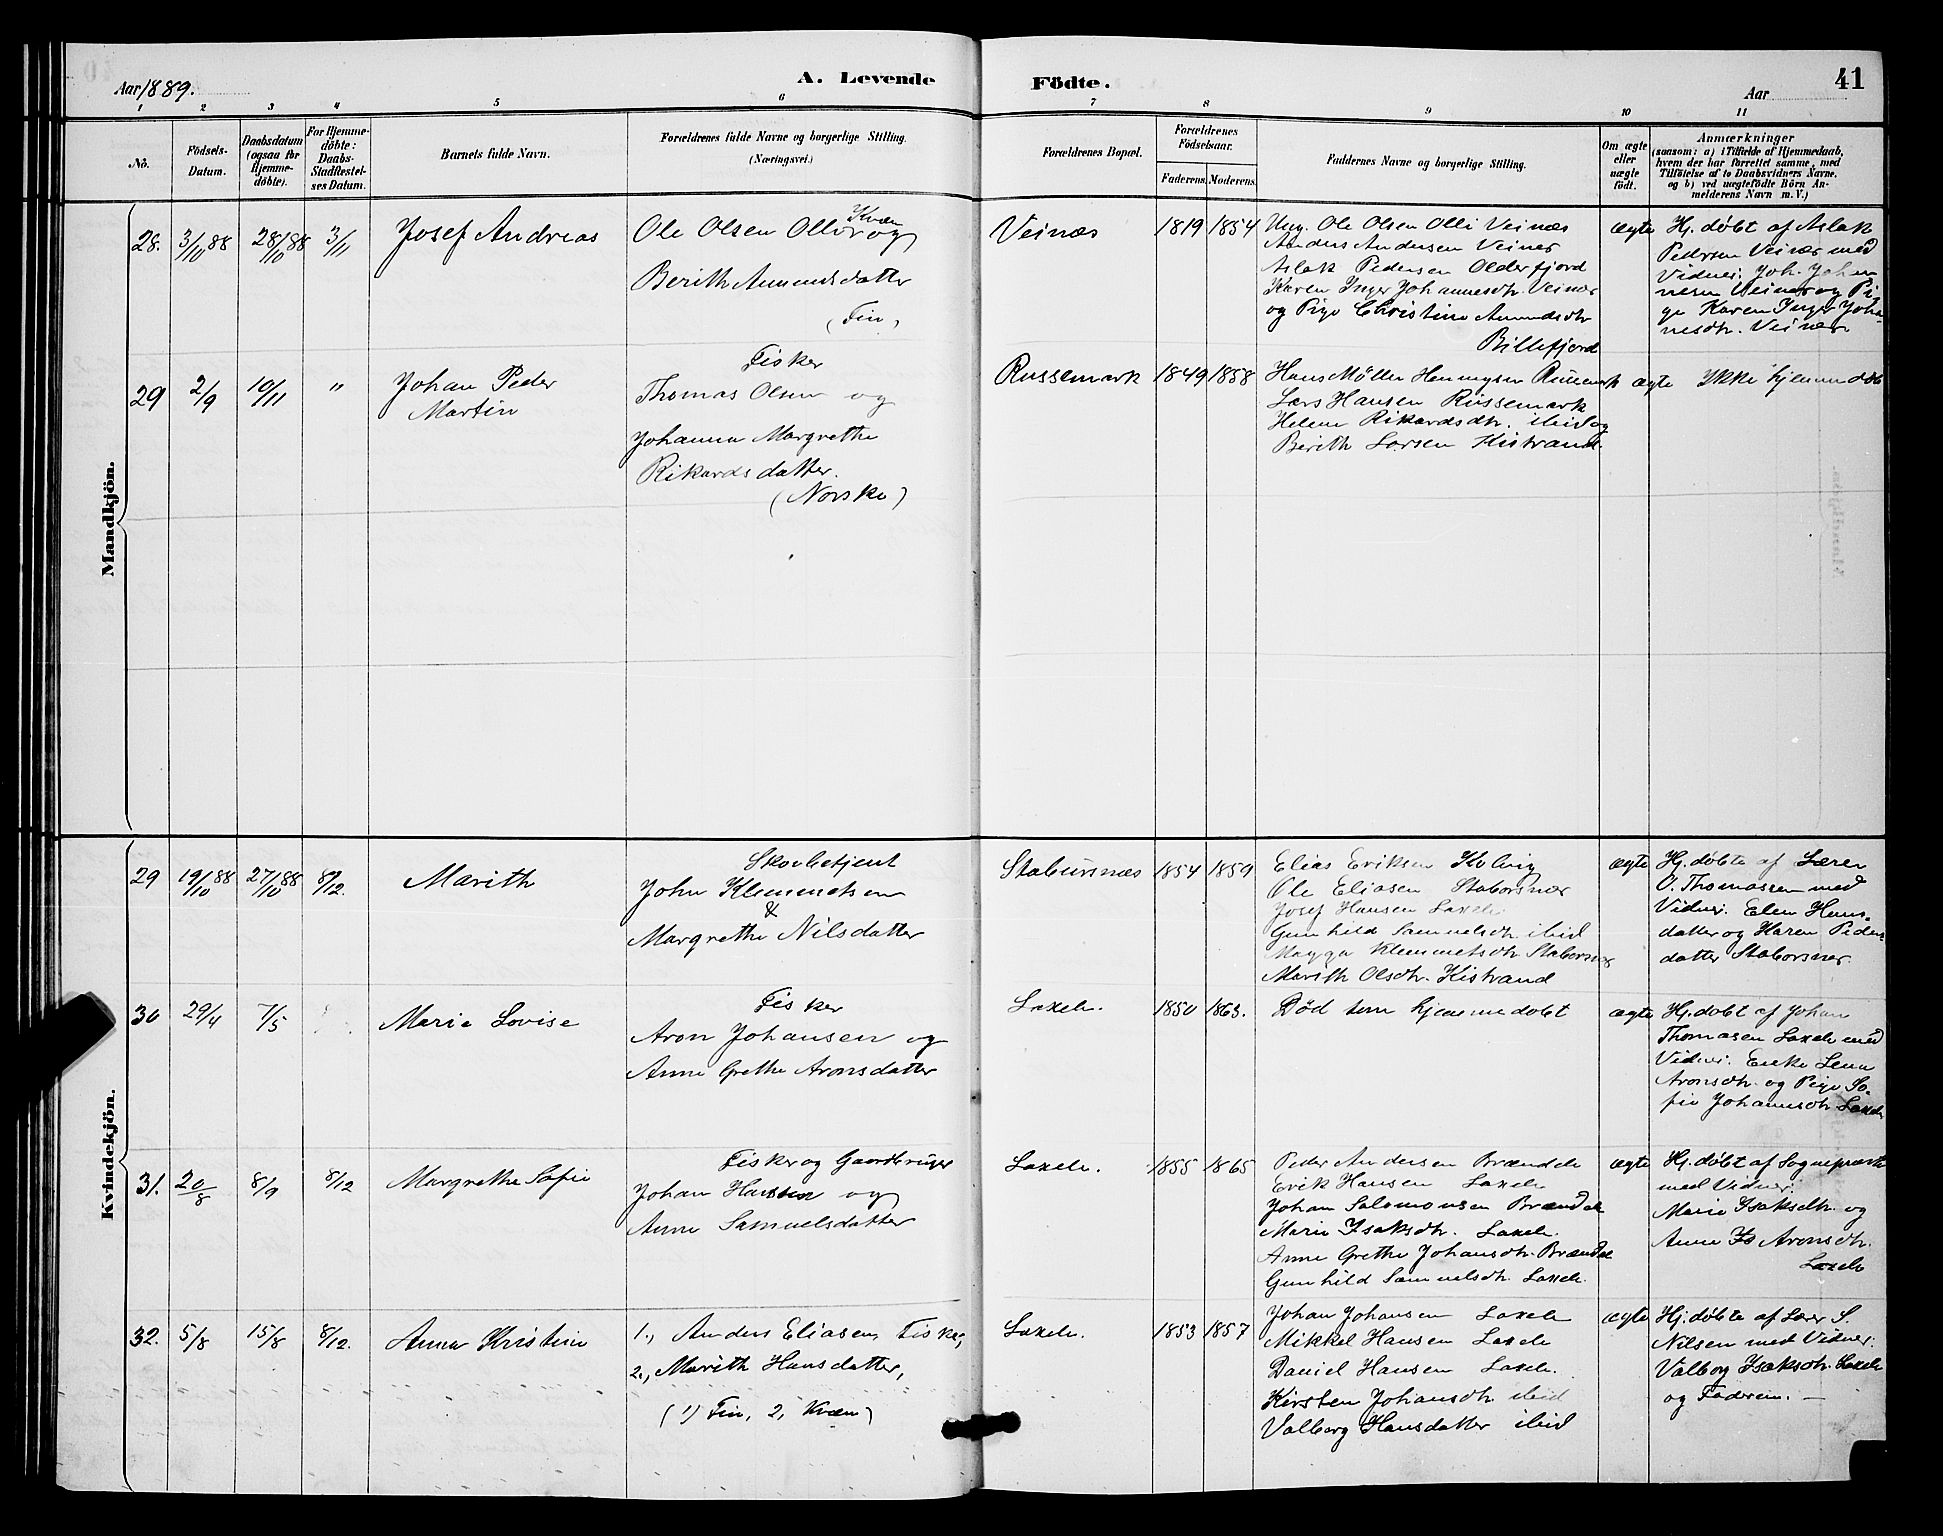 Aar 1889.
A. Levende
Födte.
Aar
41
1 2 3 4 5 6 7 8 9 10 11
No.
Födsels-
Datum.
Daabsdatum
(ogsaa for
Hjemme-
döbte).
For Hjemme-
döbte:
Daabs-
Stadfæstel-
ses Datum.
Barnets fulde Navn.
Forældrenes fulde Navne og borgerlige Stilling.
(Næringsvei.)
Forældrenes Bopæl.
Forældrenes
Födselsaar.
Faderens. Moderens.
Faddernes Navne og borgerlige Stilling.
Om ægte
eller
uægte
födt.
Anmærkninger
(saasom: a) i Tilfælde af Hjemmedaab,
hvem der har forrettet samme, med
Tilföielse af to Daabsvidners Navne.
og b) ved uægtefödte Börn An-
melderens Navn m. V.)
Mandkjön.
28. 3/10 88 28/10 88 3/11
Josef Andreas
Kvæn
Ole Olsen Olli og
Berith Amundsdatter
(Fin)
Veinæs
1819 1854
Ung. Ole Olsen Olli Veinæs
Anders Andersen Veines
Aslak Pedersen Olderfjord
Karen Inger Johannesdtr. Veinær
og Pige Christine Amundsdtr
Billefjord
ægte
Hj. döbt af Aslak
Pedersen Veinær med
Vidner: Joh. Johan
nesen Veinær og Pi-
ge Karen Inger Joha-
nesdtr. Veinær
29 2/9 10/11 "
Johan Peder
Martin
Fisker
Thomas Olsen og
Johanna Margrethe
Rikardsdatter.
(Norske)
Russemark
1849 1858
Hans Møller Henningsen Russemark
Lars Hansen Russemark
Helene Rikardsdtr. ibid og
Berith Larsen Kistrand.
ægte
Ikke hjemmedöbt
Kvindekjön.
29 19/10 88 27/10 88 8/12.
Marith
Skovbetjent
John Klemmetsen
&
Margrethe Nilsdatter
Stabursnæs
1854 1859
Elias Eriksen Kolvig
Ole Eliasen Staborsnær
Josef Hansen Laxelv
Gunhild Samuelsdtr ibid
Magga Klemmetsdtr Staborsnær
Marith Olsdtr. Kistrand
ægte
Hj. döbte af Lærer
O. Thomassen med
Vidner. Elen Hans-
datter og Karen Peders
datter Staborsnær.
30 29/4 7/5
Marie Lovise
Fisker
Aron Johansen og
Anne Grethe Aronsdatter
Laxelv.
1850 1863.
Död som hjemmedöbt
ægte
Hj. döbt af Johan
Thomasen Laxelv med
Vidner. Enke Lena
Aronsdtr. og Pige So-
fie Johannsdtr Laxelv
31. 20/8 8/9 8/12
Margrethe Sofie
Fisker og Gaardbruger
Johan Hansen og
Anne Samuelsdatter
Laxelv.
1855 1865
Peder Andersen Brændelv
Erik Hansen Laxelv
Johan Salomonsen Brændelv
Marie Isaksdtr. Laxelv.
Anne Grethe Johansdtr. Brændelv
Gunhild Samuelsdtr. Laxelv.
ægte
Hj. döbt af Sogneprest
med Vidner:
Marie Isaksdtr. og
Anne Is Aronsdtr.
Laxelv
32. 5/8 15/8 8/12.
Anna Kristine
1., Anders Eliasen, Fisker,
2., Marith Hansdatter,
(1) Fin, 2, Kvæn)
Laxelv.
1853 1857
Johan Johansen Laxelv
Mikkel Hansen Laxelv
Daniel Hansen Laxelv.
Kirsten Johansdtr. ibid
Valborg Hansdatter ibid
ægte
Hj. döbte af Lærer S.
Nilsen med Vidner:
Valborg Isaksdtr. Laxelv
og Faderen. —